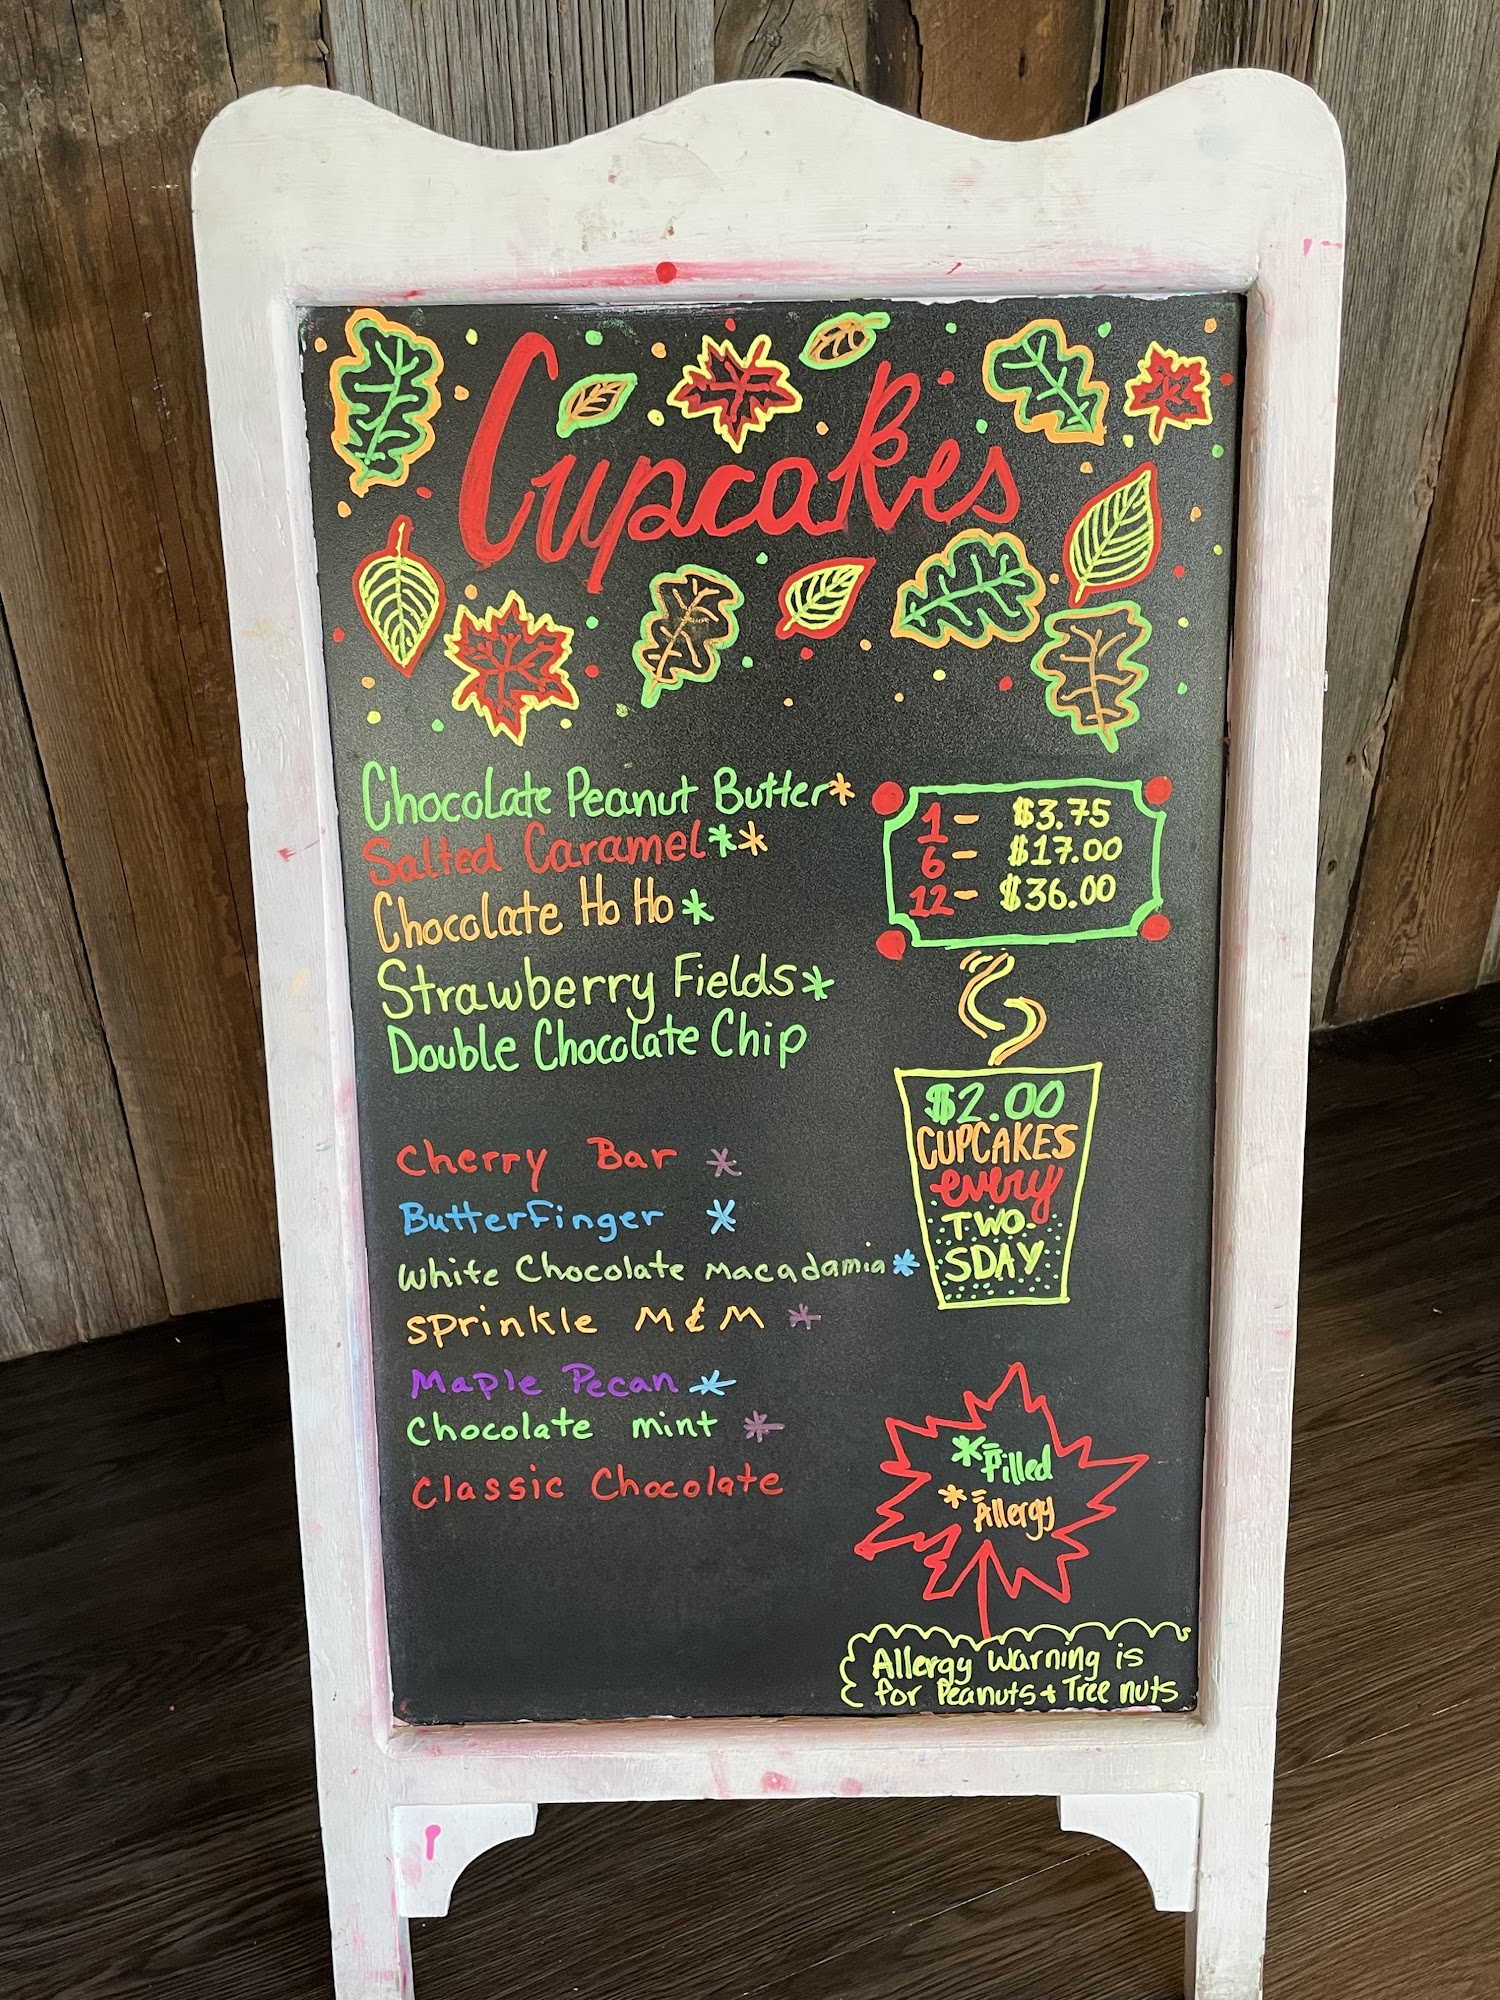 Cupcakes
Chocolate Peanut Butter*
Salted Caramel**
Chocolate Ho Ho*
Strawberry Fields*
Double Chocolate Chip
Cherry Bar *
Butterfinger *
White Chocolate Macadamia*
Sprinkle M & M *
Maple Pecan *
Chocolate mint *
Classic Chocolate
1 - $3.75
6 - $17.00
12 - $36.00
$2.00
CUPCAKES
every
TWO-
SDAY
*= Filled
*= Allergy
Allergy warning is
for Peanuts + Tree nuts